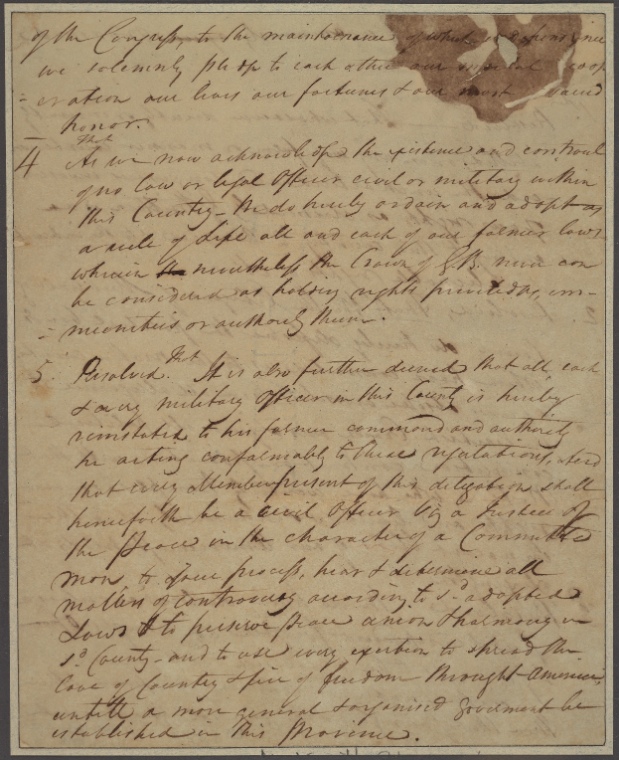 of the Congress, to the maintainance of which independence
we solemnly pledge to each other our mutual coop
eration our lives our fortunes & our most sacred
honor.
4 That As we now acknowledge the existence and controul
of no law or legal Officer civil or military within
this County – We do hereby ordain and adopt as
a rule of life all and each of our former laws
wherein nevertheless the Crown of G. B. never can
be considered as holding rights priviledges, im-
munities or authority therein.
5 Resolved That It is also further decreed that all, each
& every military Officer in this County is hereby
reinstated to his former command and authority
he acting conformably to these regulations, and
that every Member present of this delegation shall
henceforth be a civil Officer Viz a Justice of
the Peace in the character of a Committee
man, to issue process, hear & determine all
matters of controversy according to sd adopted
Laws & to preserve Peace union & harmony in
sd County – and to use every exertion to spread the
love of Country & fire of freedom throught America,
untill a more general & organised Goverment be
established in this Province.